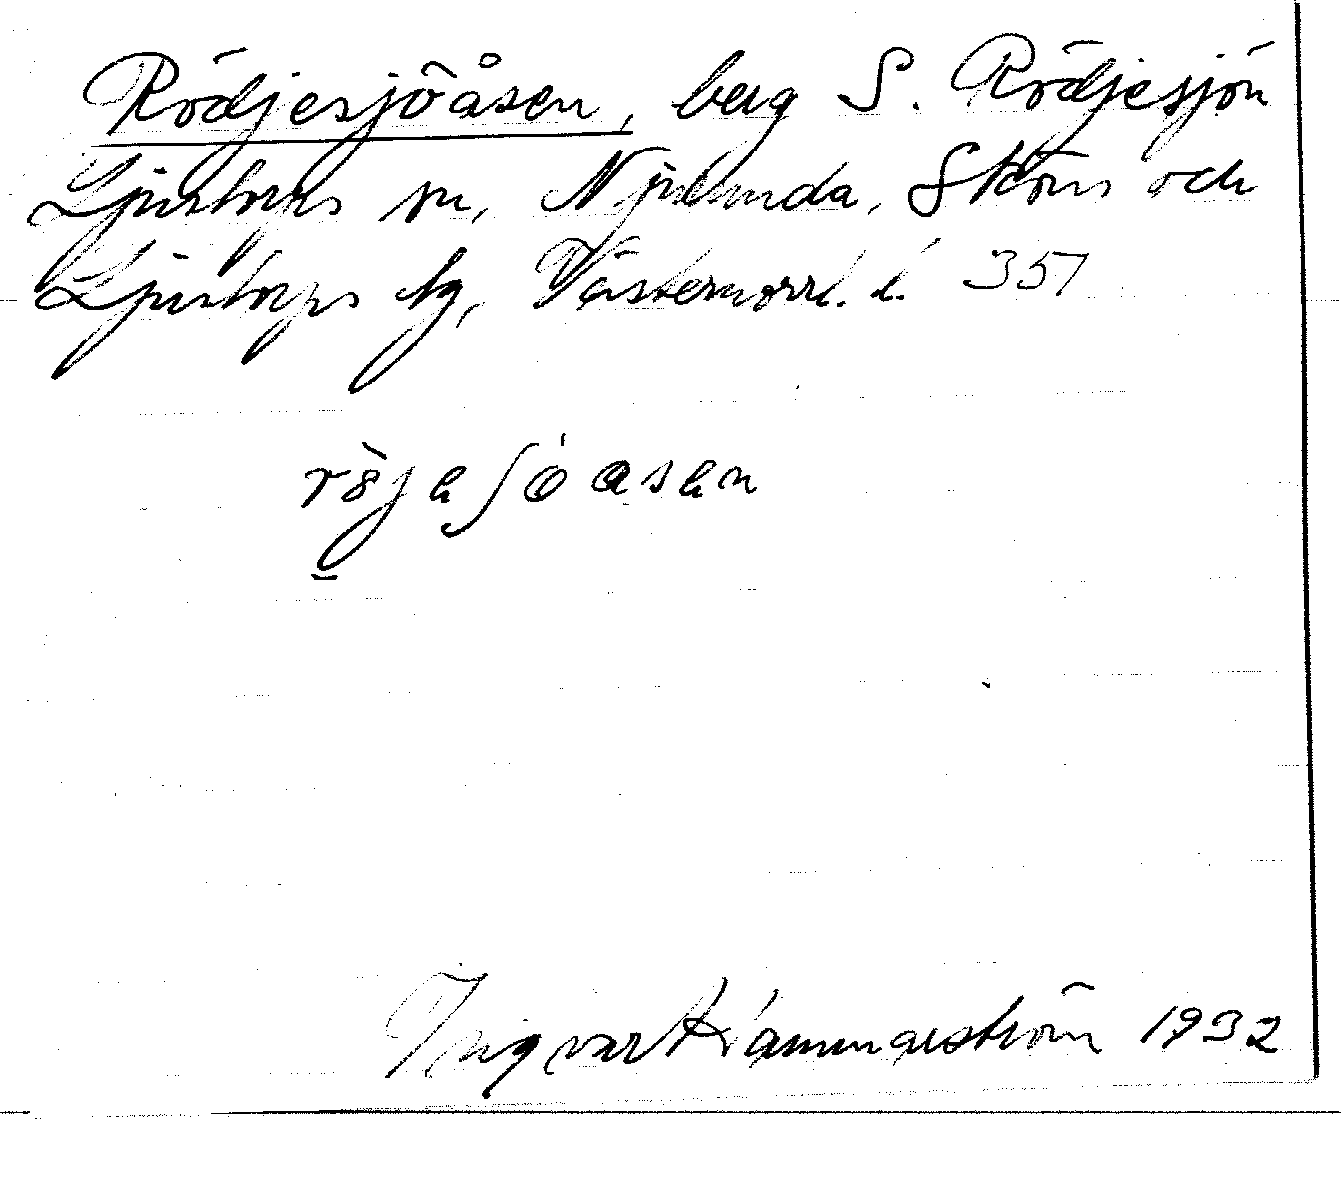 Rödjesjöåsen, berg S. Rödjesjön
Ljustorps sn, Njurunda, Sköns och
Ljustorps tg, Västernorrl. l. 357
röjesjöasen
Ingvar Hammarström 1932